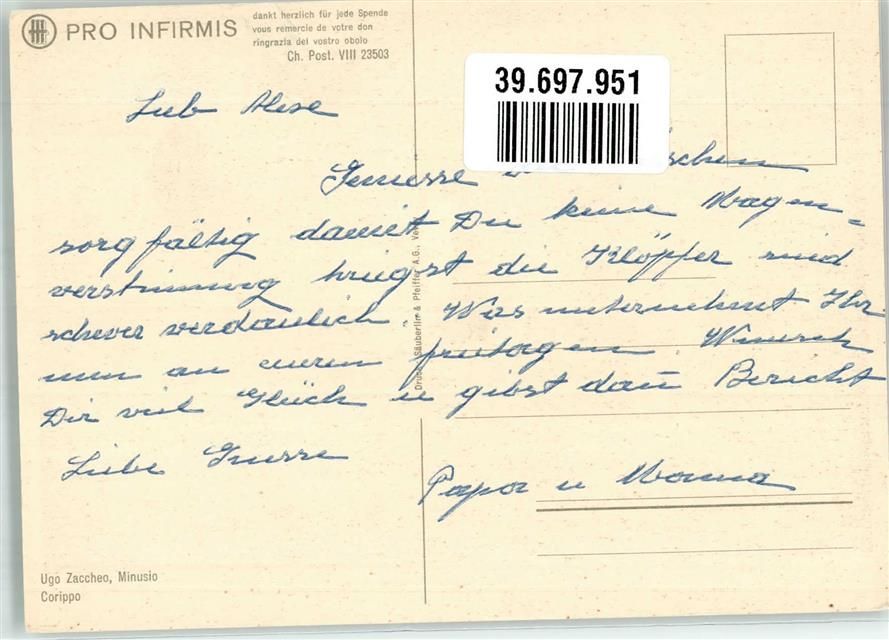 PRO INFIRMIS
dankt herzlich für jede Spende
vous remercie de votre don
ringrazia del vostro obolo
Ch. Post. VIII 23503
39.697.951
Lieb
Geniesse
sorgfältig damit Du keine Magen=
verstimmung kriegst die Klöpfer sind
schwer verdaulich. Was unternehmt Ihr
nun an euren freitagen. Wünsch
Dir viel Glück u gibst dan̄ Bericht
Liebe Grüsse
Papa u Mama
Druck Säuberlin & Pfeiffer A.G., Vev
Ugo Zaccheo, Minusio
Corippo